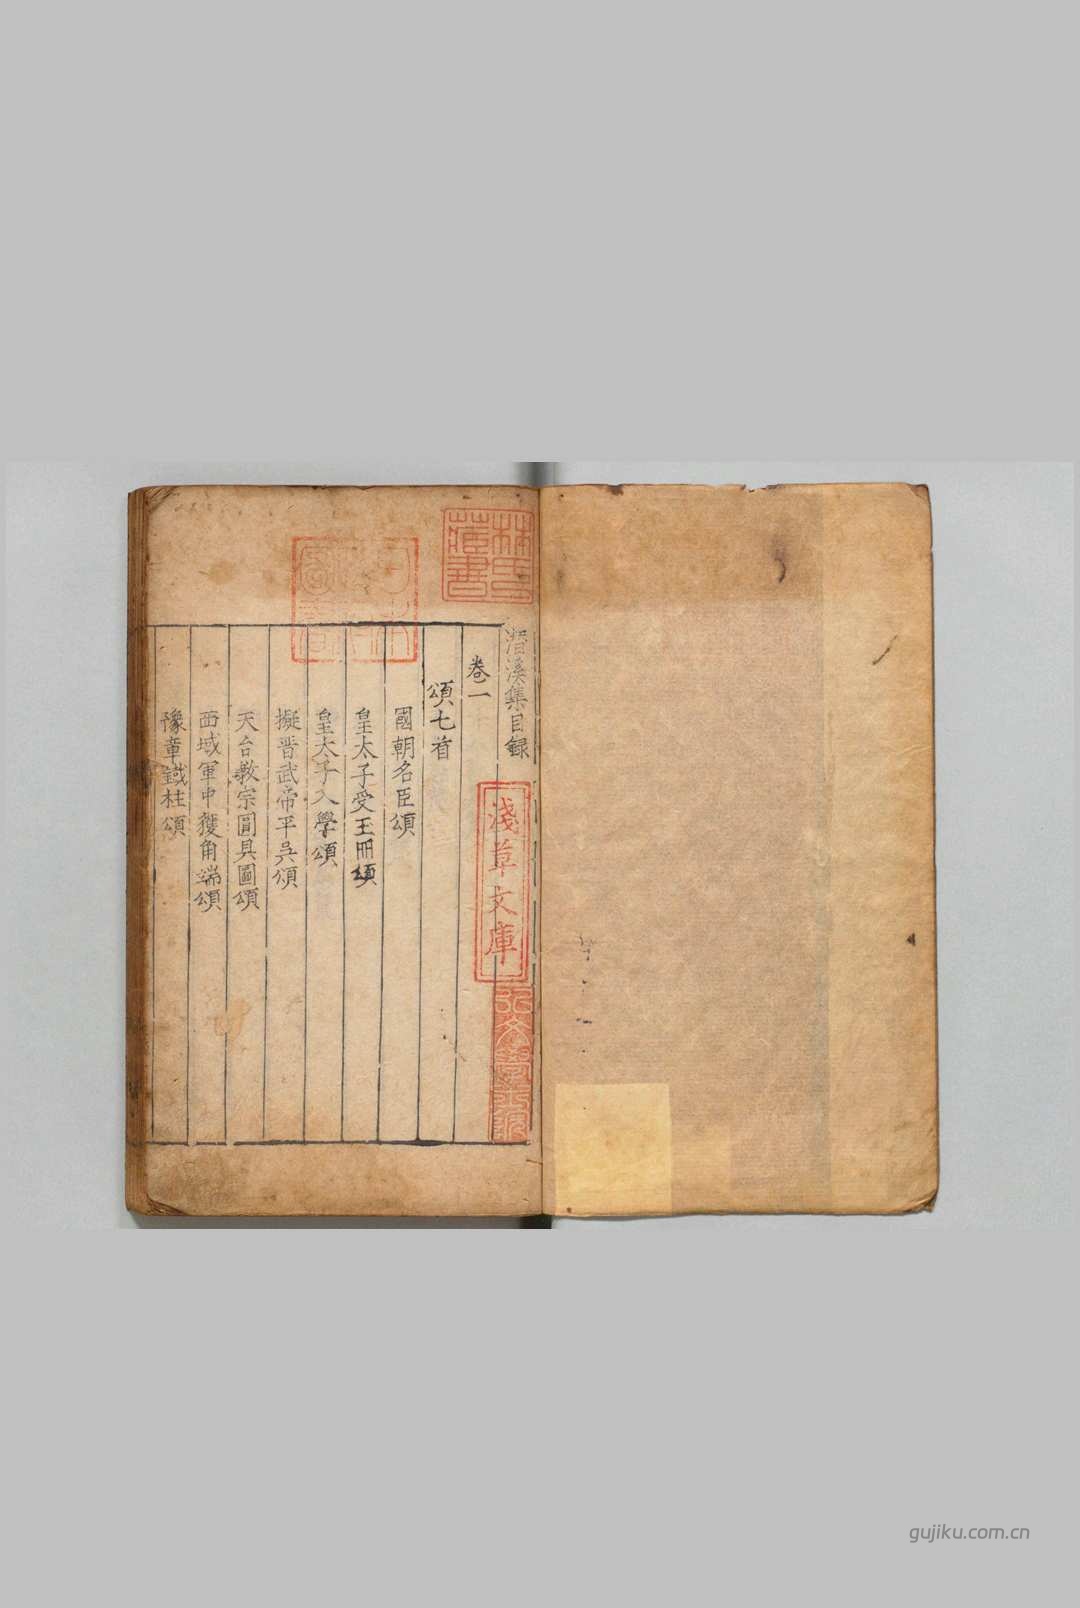 潛溪集目録
卷一
頌七首
國朝名臣頌
皇太子受玉冊頌
皇太子入學頌
擬晋武帝平吳頌
天台教宗圓具圖頌
西域軍中獲角端頌
豫章鐵柱頌
林氏藏書
日本
淺草文庫
弘文學士院
gujiku.com.cn